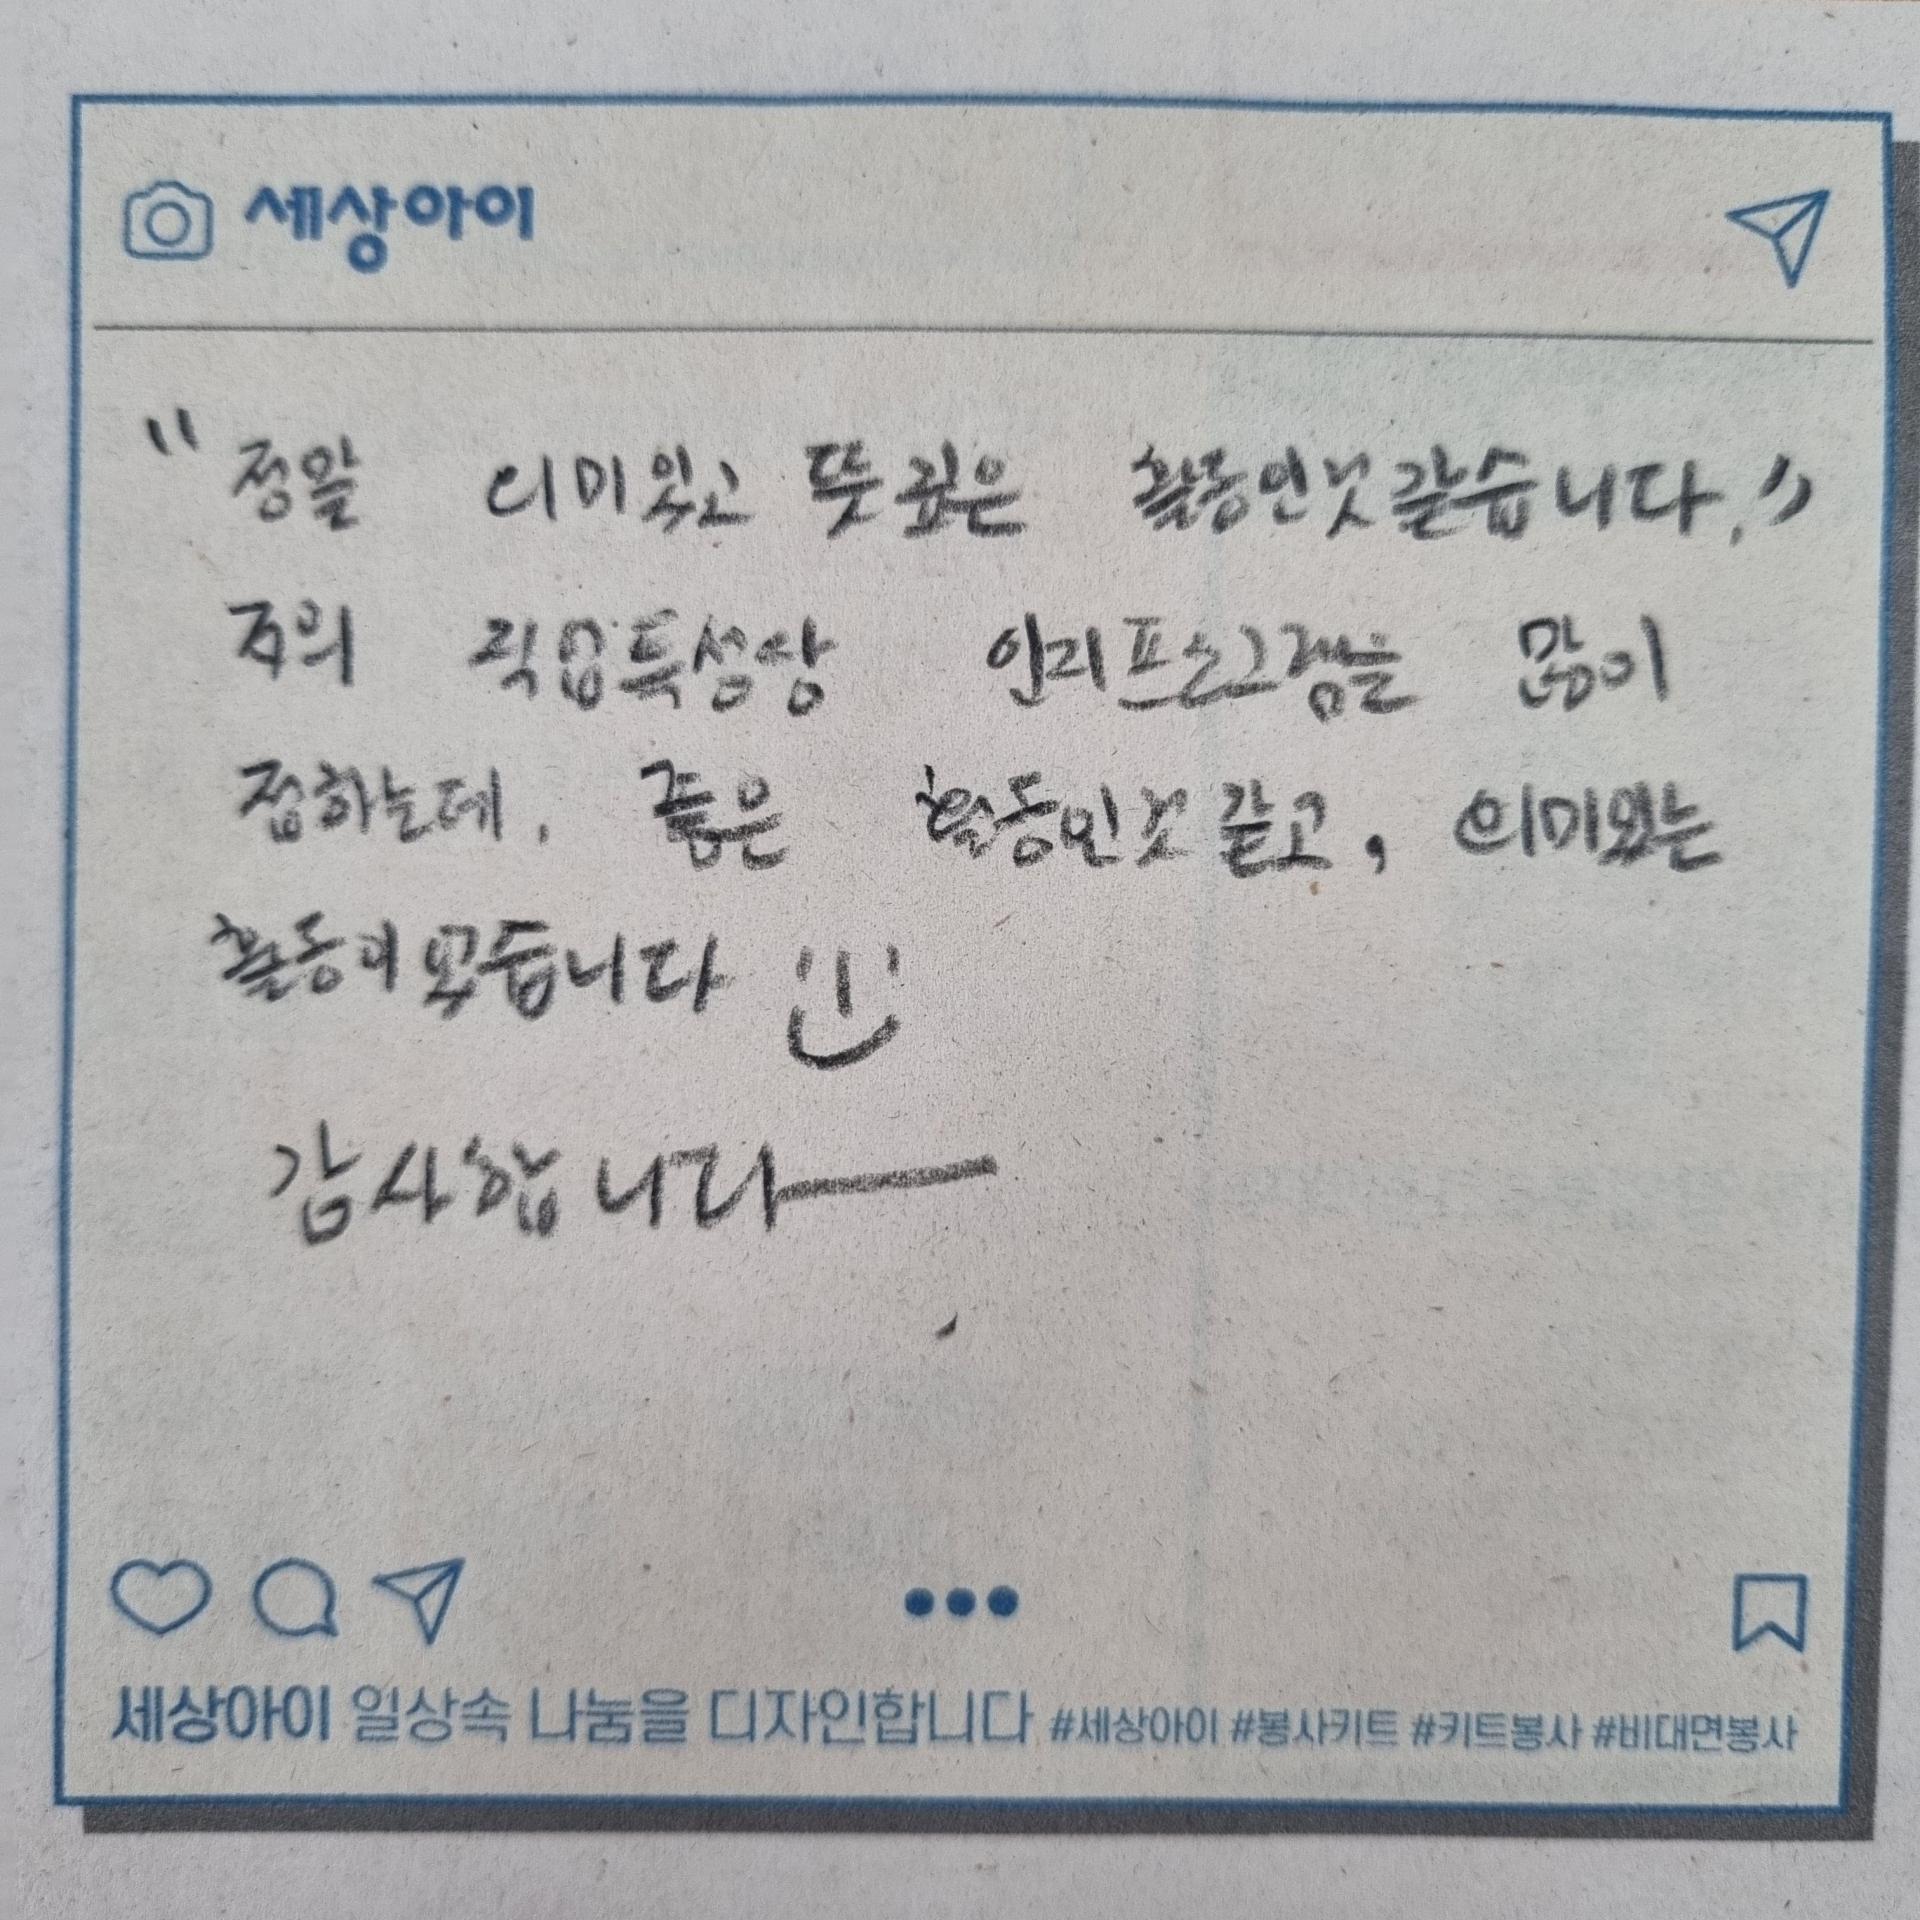 세상아이
"정말 의미있고 뜻 깊은 활동인것 같습니다."
저의 직업특성상 심리프로그램을 많이
접하는데, 좋은 활동인것 같고, 의미있는
활동이였습니다
감사합니다
세상아이 일상속 나눔을 디자인합니다 #세상아이 #봉사키트 #키트봉사 #비대면봉사